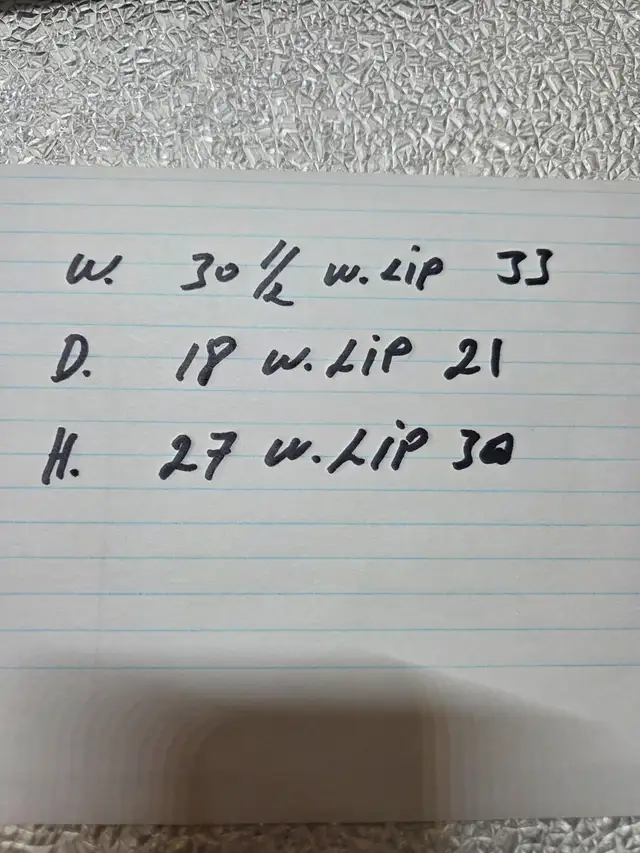 W. 30 1/2 W. LiP 33
D. 18 W. LiP 21
H. 27 W. LiP 30